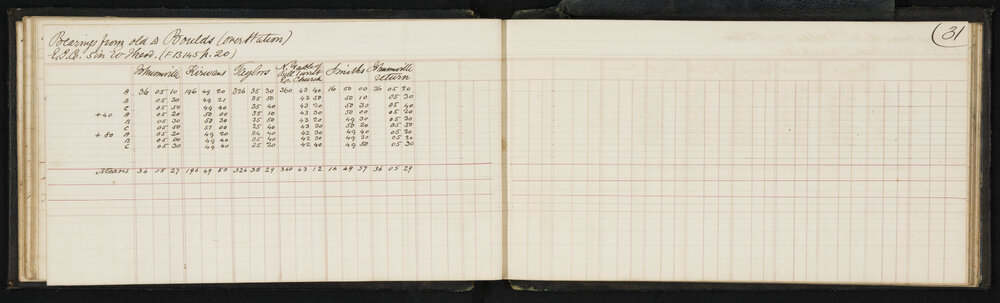 (31)
Bearings from old Δ Boulds (over Station)
E.G.B. 5 in Theod. (F B 145 p. 20)
Johnsonville Kirwans Taylors N. Gable of Church Smiths Johnsonville return
A 36 05 10 196 49 20 326 35 30 360 43 40 16 50 00 36 05 20
B 05 30 49 21 35 50 43 50 50 10 05 30
C 05 50 49 40 35 40 43 20 50 30 05 40
+40 A 05 20 50 00 35 10 43 30 50 00 05 20
B 05 30 50 30 35 50 43 20 49 30 05 30
C 05 50 51 00 25 40 43 30 50 20 05 50
+80 A 05 20 49 20 34 40 42 30 49 40 05 20
B 05 00 49 40 35 40 42 30 49 30 05 20
C 05 30 49 40 35 20 42 40 49 50 05 30
Means 36 05 27 196 49 50 326 35 29 360 43 12 16 49 57 36 05 29